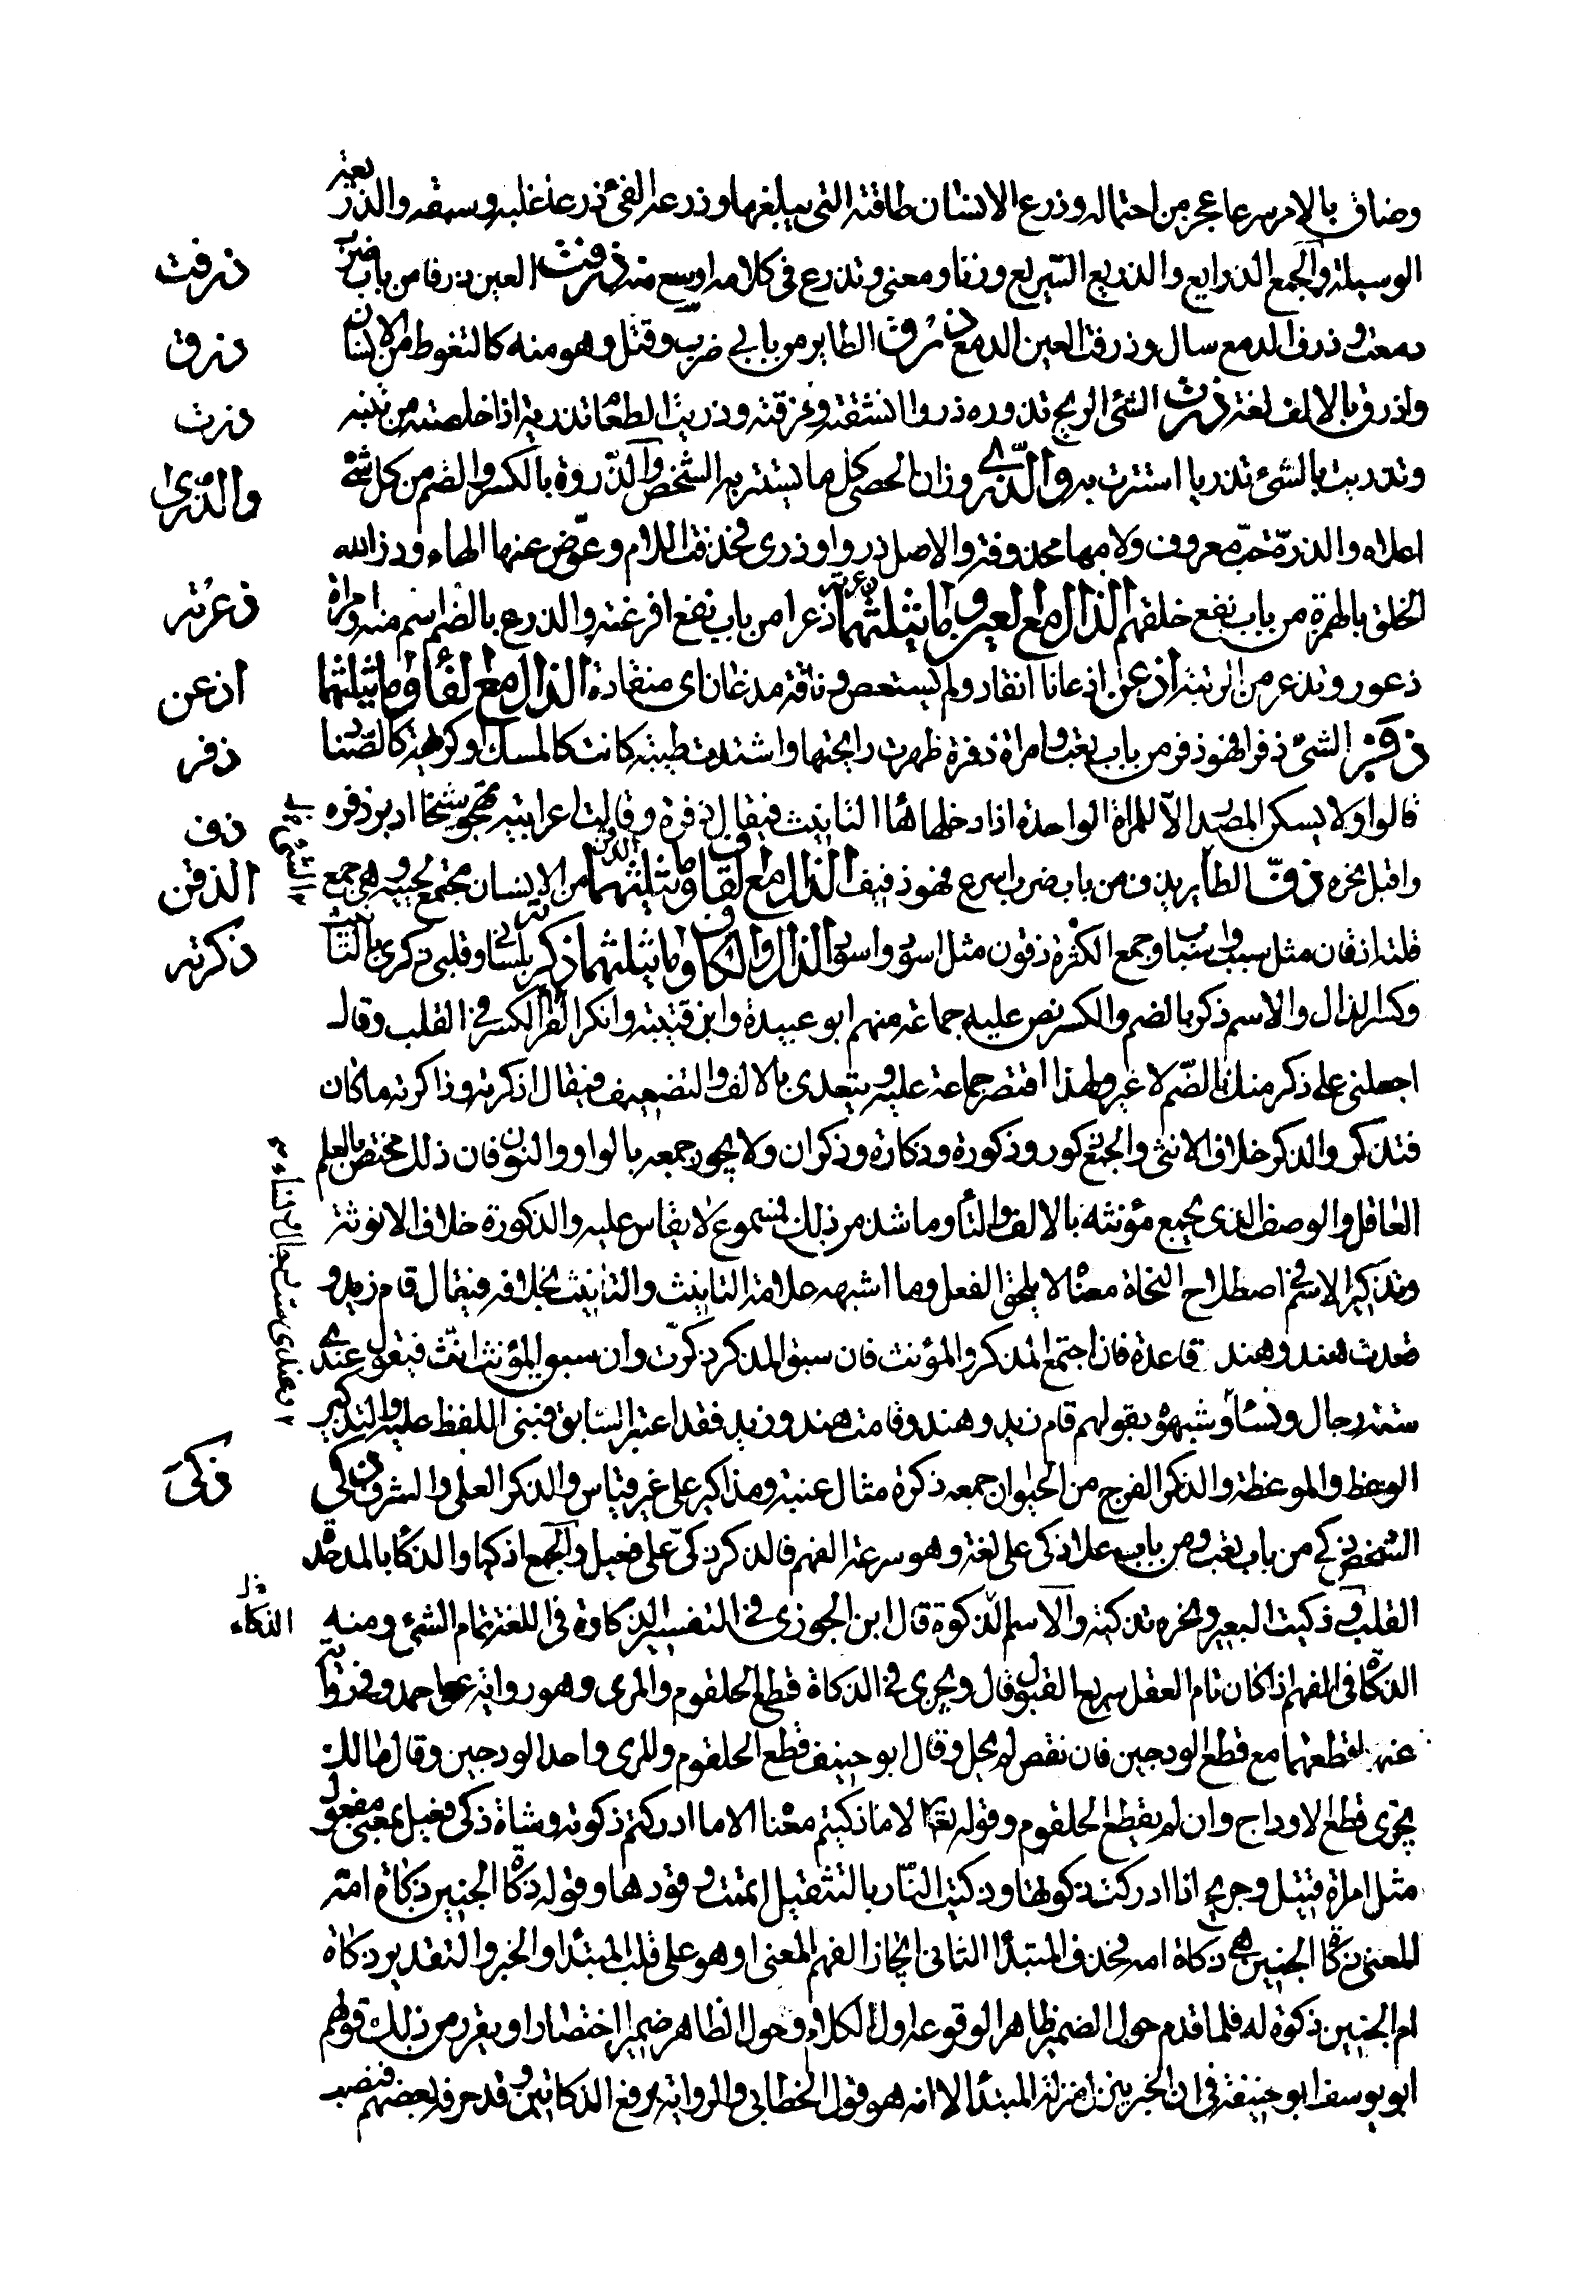 وضاق بالامر ذرعا عجز من احتماله وذرع الانسان طاقته التى يبلغها وذرعه القئ ذرعا غلبه وسبقه والذريعة
الوسيلة والجمع الذرايع والذريع السريع وزنا ومعنى وتذرع فى كلامه اوسع منه ذرفت العين ذرفا من باب ضرب
دمعت وذرف الدمع سال وذرفت العين الدمع ذرق الطاير من بابى ضرب وقتل وهو منه كالتغوط من الانسان
واذرق بالالف لغة ذرت الشئ الريح تذروه ذروا نسفته وفرقته وذريت الطعام تذرية اذا خلصته من تبنه
وتذريت بالشئ تذريا استترت به والذرى وزان الحصى كل ما يستتر به الشخص والذروة بالكسر والضم من كل شئ
اعلاه والذرة حب معروف ولامها محذوفة والاصل ذرو او ذرى فحذفت اللام وعوض عنها الهاء وذرا الله
الخلق بالهمزة من باب نفع خلقهم الذال مع العين وما يثلثهما ذعرته ذعرا من باب نفع افزغته والذعر بالضم اسم منه وامراة
ذعور وتذعر من الريبة اذعن اذعانا انقاد ولم يستعص وناقة مذعان اى منقادة الذال مع الفاء وما يثلثهما
ذفر الشئ ذفرا فهو ذفر من باب تعب وامراة ذفرة ظهرت رايحتها واشتدت طيبة كانت كالمسك او كريهة كالصنان
قالوا ولا يسكن المصدر الا للمراة الواحدة اذا دخلها هاء التانيث فيقال ذفرة وقالت اعرابية تهجو شيخا ادبر ذفره
واقبل بخره ذف الطاير يذف من باب ضرب اسرع فهو ذفيف الذال مع القاف وما يثلثهما الذقن من الانسان مجتمع لحييه وجمع
قلته اذقان مثل سبب واسباب وجمع الكثرة ذقون مثل اسد واسود الذال والكاف وما يثلثهما ذكرته بلسانى وقلبى ذكرى بالتانيث
وكسر الذال والاسم ذكر بالضم والكسر نص عليه جماعة منهم ابو عبيدة وابن قتيبة وانكر الفراء الكسر فى القلب وقال
اجعلنى على ذكر منك بالضم لا غير ولهذا اقتصر جماعة عليه ويتعدى بالالف والتضعيف فيقال اذكرته وذاكرته ما كان
فتذكر والذكر خلاف الانثى والجمع ذكور وذكورة وذكارة وذكران ولا يجوز جمعه بالواو والنون فان ذلك مختص بالعلم
العاقل والوصف الذى يجمع مؤنثه بالالف والتاء وما شذ من ذلك فمسموع لا يقاس عليه والذكورة خلاف الانوثة
وتذكير الاسم فى اصطلاح النحاة معناه لا يلحق الفعل وما اشبهه علامة التانيث والتانيث بخلافه فيقال قام زيد و
قعدت هند وهند قاعدة فان اجتمع المذكر والمؤنث فان سبق المذكر ذكرت وان سبق المؤنث انثت فيقول عندى
ستة رجال ونساء وشبهوه بقولهم قام زيد وهند وقامت هند وزيد فقد اعتبر السابق فبنى اللفظ عليه والتذكير
الوعظ والموعظة والذكر الفرج من الحيوان جمعه ذكرة مثال عنبة ومذاكير على غير قياس والذكر العلى والشرف ذكى
الشخص ذكى من باب تعب ومن باب علا ذكى على لغة وهو سرعة الفهم فالذكر ذكى على فعيل والجمع اذكياء والذكاء بالمد حدة
القلب وذكيت البعير ونحره تذكية والاسم الذكوة قال ابن الجوزى فى التفسير الذكاوة فى اللغة تمام الشئ ومنه
الذكاء فى الفهم اذا كان تام العقل سريع القبول قال ويجزى فى الذكاة قطع الحلقوم والمرى وهو رواية عن احمد وفى رواية
عنه قطعهما مع قطع الودجين فان نقص لم يحل وقال ابو حنيفة قطع الحلقوم والمرى واحد الودجين وقال مالك
يجزى قطع الاوداج وان لم يقطع الحلقوم وقوله تعالى الا ما ذكيتم معناه الا ما ادركتم ذكوته وشاة ذكى فعيل بمعنى مفعول
مثل امراة قتيل وجريح اذا ادركت ذكوتها وذكيت النار بالتثقيل اتممت وقودها وقوله ذكاة الجنين ذكاة امه
المعنى ذكاة الجنين هى ذكاة امه فحذف المبتدا الثانى ايجازا لفهم المعنى وهو على قلب المبتدا والخبر والتقدير ذكاة
ام الجنين ذكوة له فلما قدم حول الضمير ظاهرا لوقوعه اول الكلام وحول الظاهر ضميرا اختصارا ويقرب من ذلك قولهم
ابو يوسف ابو حنيفة فى ان الخبر ينزل منزلة المبتدا لا انه هو قول الخطابى والرواية برفع الذكاتين وقد حرفه بعضهم فنصب
ذرفت
ذرق
ذرت
والذرى
ذعرته
اذعن
ذفر
ذف
الذقن
ذكرته
ذكى
الذكاء